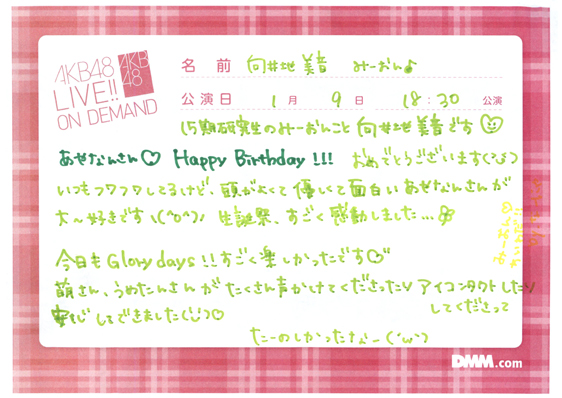 AKB48
LIVE!!
ON DEMAND
AKB
48
名前 向井地美音 みーおん♪
公演日 1月9日 18:30 公演
15期研究生のみーおんこと向井地美音です
あぜなんさん♡ Happy Birthday!!! おめでとうございます
いつもフワフワしてるけど、頭がよくて優しくて面白いあぜなんさんが
大〜好きです\(^o^)/ 生誕祭、すごく感動しました…
今日もGlory days!!すごく楽しかったです♡
萌さん、うめたんさんがたくさん声かけてくださったりアイコンタクトしたり
してくださって
安心してできました
たーのしかったなー(´ω`)
みーおん♡
DMM.com